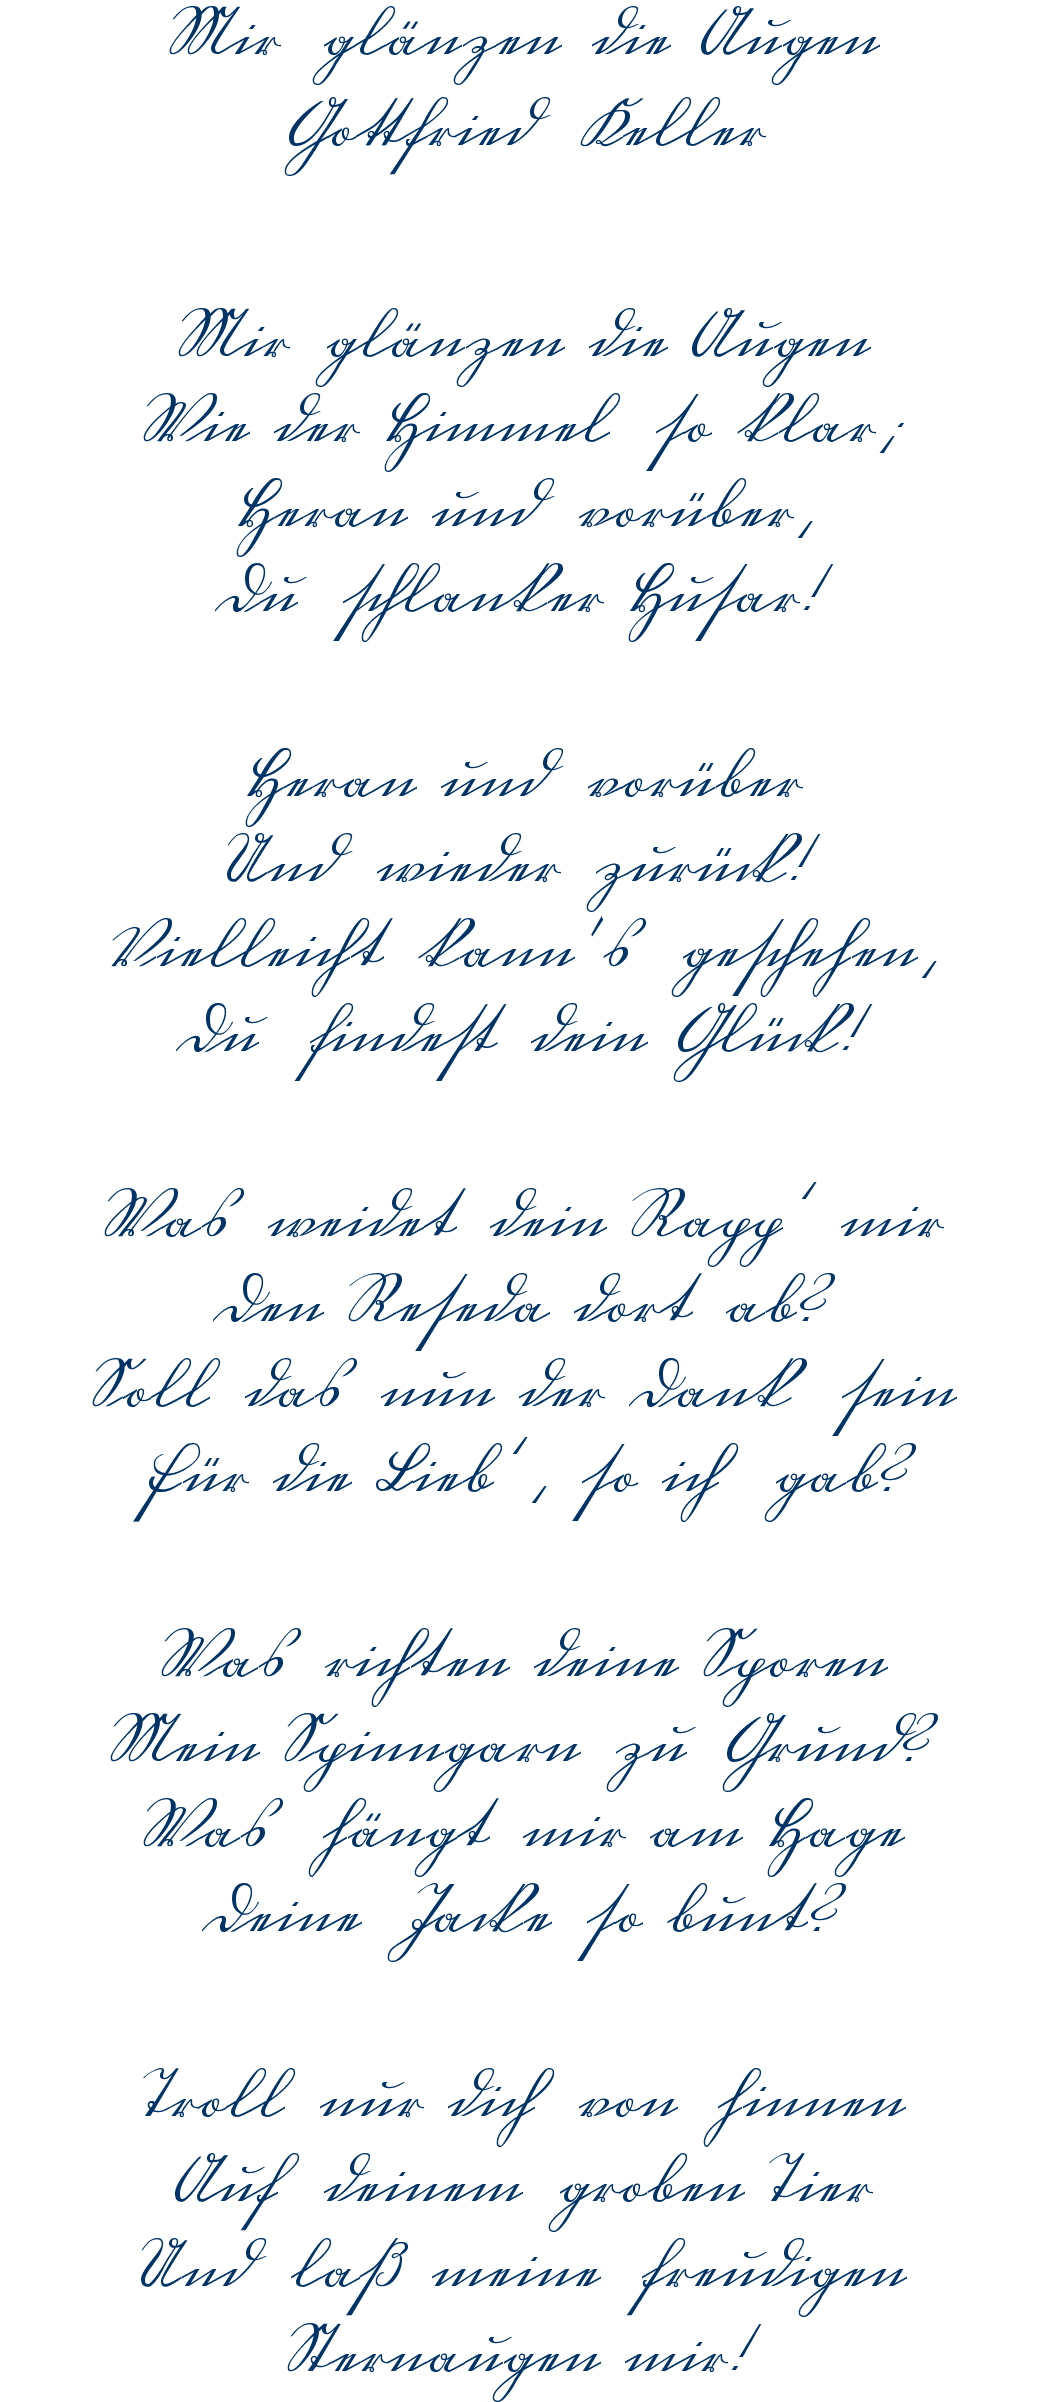 Mir glänzen die Augen
Gottfried Keller
Mir glänzen die Augen
Wie der Himmel so klar;
Heran und vorüber,
Du schlanker Husar!
Heran und vorüber
Und wieder zurück!
Vielleicht kann's geschehen,
Du findest dein Glück!
Was weidet dein Rapp' mir
Den Reseda dort ab?
Soll das nun der Dank sein
Für die Lieb', so ich gab?
Was richten deine Sporen
Mein Spinngarn zu Grund?
Was hängt mir am Hage
Deine Jacke so bunt?
Troll nur dich von hinnen
Auf deinem groben Tier
Und laß meine freudigen
Sternaugen mir!